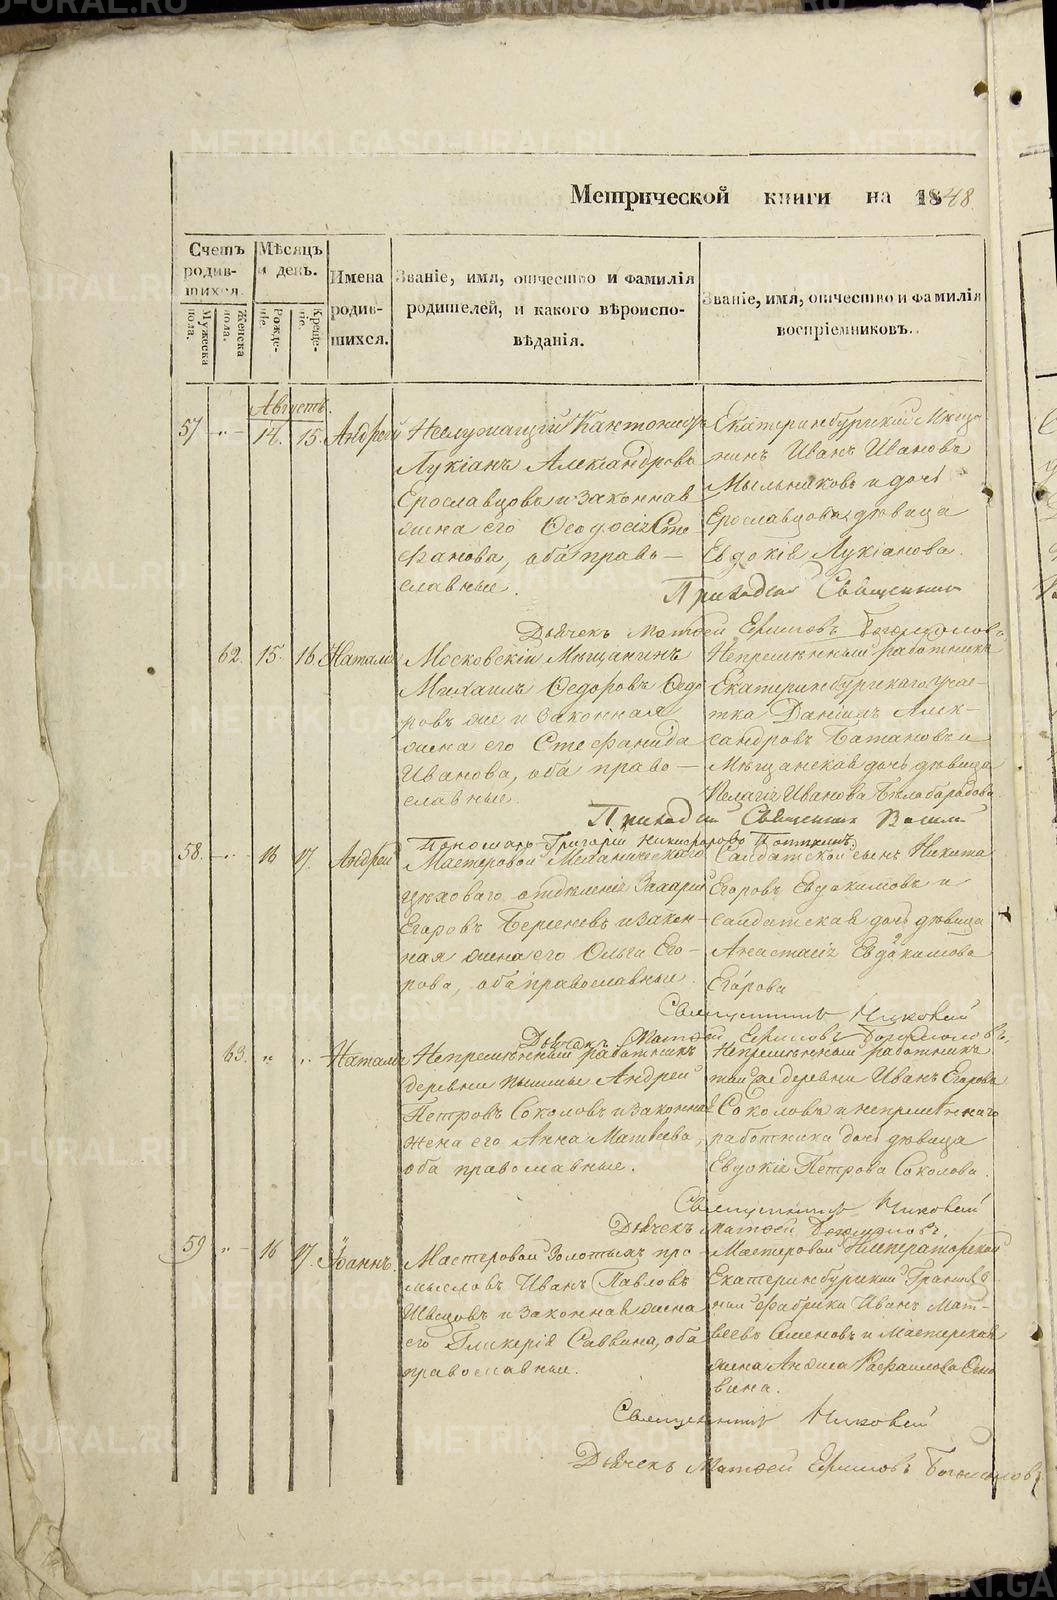 Метрической книги на 1848.
Счетъ родив-шихся.
Мѣсяцъ и день.
Имена родив-шихся.
Званіе, имя, отчество и фамилія родителей, и какого вѣроиспо-вѣданія.
Званіе, имя, отчество и фамилія воспріемниковъ.
Мужеска пола.
Женска пола.
Рожде-ніе.
Креще-ніе.
Августъ.
57 14. 15. Андрей
Неслужащій Кантонистъ
Лукіанъ Александровъ
Ерославцовъ и законная
жена его Ѳеодосія Сте-
фанова, оба право-
славные.
Екатеринбургскій Мѣща-
нинъ Иванъ Ивановъ
Мыльниковъ и дочь
Ерославцова дѣвица
Евдокія Лукіанова.
Дьячекъ Матѳей Ефимовъ Богомоловъ
62. 15. 16 Наталія
Московскій Мѣщанинъ
Михаилъ Ѳедоровъ Ѳедо-
ровъ же и законная
жена его Стефанида
Иванова, оба право-
славные.
Непремѣнный работникъ
Екатеринбургскаго учас-
тка Даніилъ Алек-
сандровъ Батановъ и
Мѣщанская дочь дѣвица
Пелагія Иванова Бѣлобородова.
Священникъ
Пономарь Григорій Никифоровъ
58. 16 17. Андрей
Мастеровой Механическаго
цѣховаго отдѣленія Захарій
Егоровъ Берсеневъ и закон-
ная жена его Ольга Его-
рова, оба православные.
Салдатской сынъ Никита
Егоровъ Евдокимовъ и
салдатская дочь дѣвица
Анастасія Евдокимова
Егорова
Священникъ
Дьячекъ Матѳей Ефимовъ Богомоловъ.
63. " " Наталія
Непремѣнный работникъ
деревни Пышмы Андрей
Петровъ Соколовъ и законная
жена его Анна Матвѣева,
оба православные.
Непремѣнный работникъ
той же деревни Иванъ Егоровъ
Соколовъ и непремѣннаго
работника дочь дѣвица
Евдокія Петрова Соколова.
Священникъ
Дьячекъ Матѳей Богомоловъ.
59 " 16 17. Іоаннъ.
Мастеровой Золотыхъ про-
мысловъ Иванъ Павловъ
Швецовъ и законная жена
его Гликерія Саввина, оба
православные.
Мастеровой Императорской
Екатеринбургской Гранил-
ной фабрики Иванъ Мат-
веевъ Семеновъ и Мастерская
жена Анфиса
вина.
Священникъ
Дьячекъ Матѳей Ефимовъ Богомоловъ
METRIKI.GASO-URAL.RU